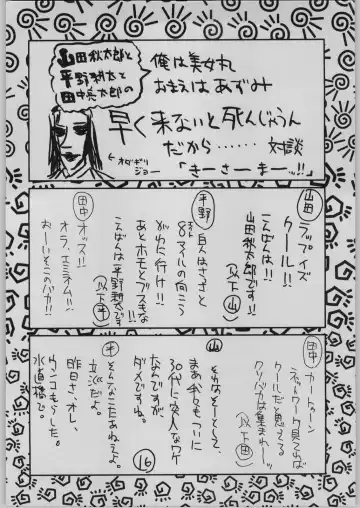 山田秋太郎と
平野耕太と
田中亮太郎の
俺は美女丸
おまえはあずみ
早く来ないと死んじゃうん
だから……対談
「きーさーまーッ!!」
←オダギリ
ジョー
山田
ラップ イズ
クール!!
こんばんは!!
山田秋太郎です!!
(以下山)
平野
巨人はさっさと
8マイルの向こう
がわに行け!!
あとホモとブスもな
こんばんは平野耕太です
(以下平)
田中
オッス!!
オラ、エミネム!!
おーいそこのバカ!!
田中
カートゥーン
ネットワーク見てれば
クールだと思ってる
クソバカは集まれーッ
(以下田)
山
それはそーとして、
まあ我々もついに
30代に突入なワケ
なんですが、
ダメですね。
平
そんなこたあねえよ。
立派だよ。
昨日さ、オレ、
ウンコもらした。
水道橋で。
16